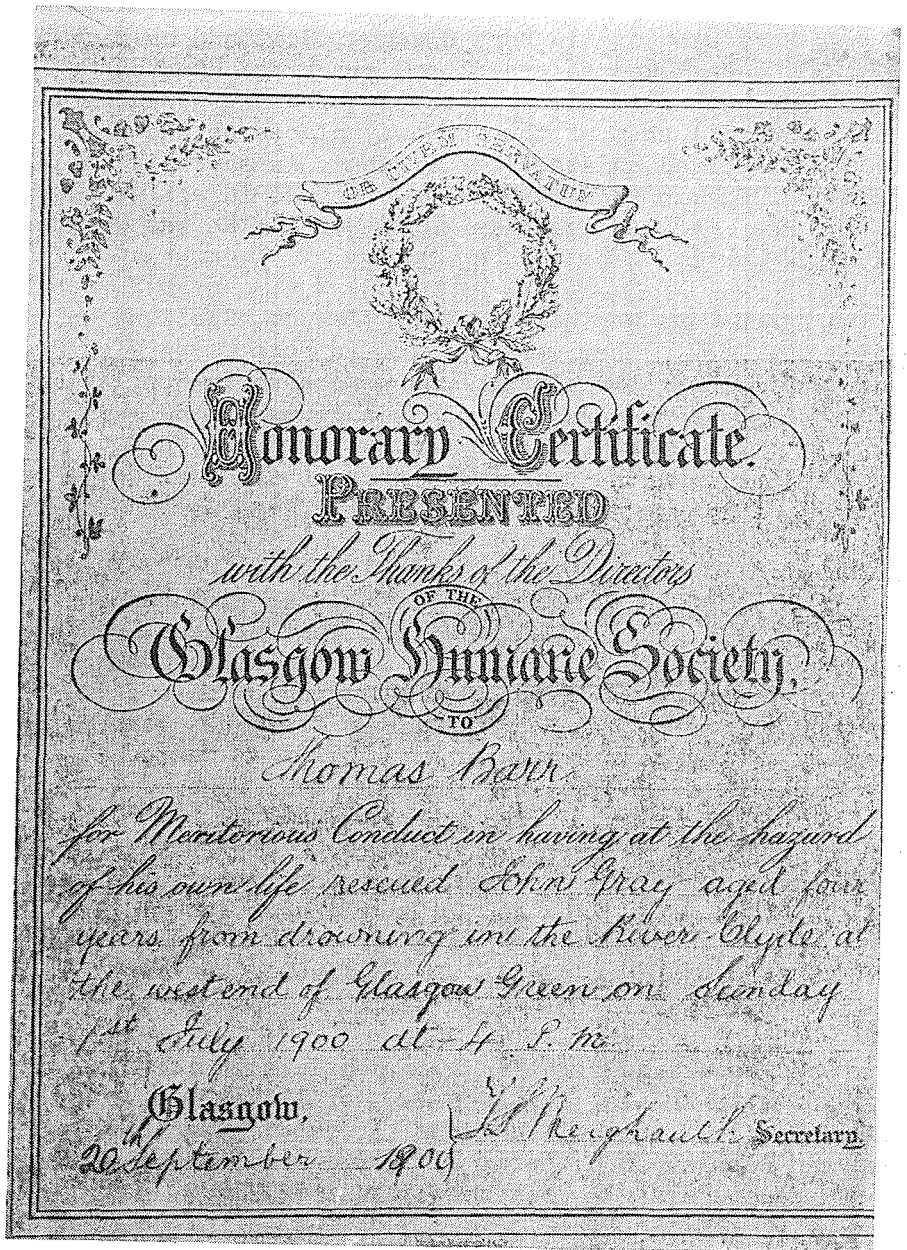 OB CIVEM SERVATUM
Honorary Certificate.
PRESENTED
with the Thanks of the Directors
OF THE
Glasgow Humane Society,
TO
Thomas Barr
for Meritorious Conduct in having at the hazard
of his own life rescued John Gray aged four
years from drowning in the River Clyde at
the west end of Glasgow Green on Sunday
1st July 1900 at 4 P. m.
Glasgow,
Secretary.
20th September 1900